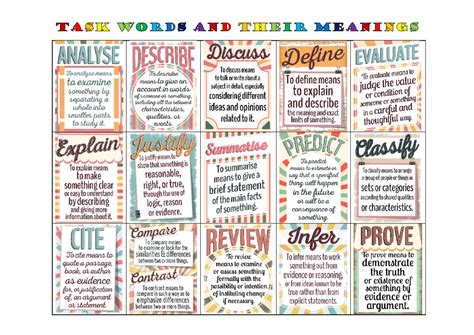 TASK WORDS AND THEIR MEANINGS
ANALYSE
To analyse means
to examine
something by
separating a
whole into
smaller parts
to study it.
DESCRIBE
To describe
means to give an
account in words
of someone or something,
including all the relevant
characteristics,
qualities, or
events.
Discuss
To discuss means
to talk or write about a
subject in detail, especially
considering different
ideas and opinions
related to it.
Define
To define means
to explain
and describe
the meaning and exact
limits of something.
EVALUATE
To evaluate means to
judge the value
or condition of
someone or something
in a careful and
thoughtful way.
Explain
To explain means
to make
something clear
or easy to understand
by describing
and giving more
information about it.
Justify
To justify means to
show that something is
reasonable,
right, or true,
through the use of
logic, reason
or evidence.
Summarise
To summarise
means to give a
brief statement
of the main facts
of something.
PREDICT
To predict
means to estimate or
say that a specified
thing will happen
in the future
or will be a
consequence of
something.
Classify
To classify means to arrange
a group of people or things in
sets or categories
according to shared qualities
or characteristics.
CITE
To cite means to
quote a passage,
book, or author
as evidence
for, or justification of,
an argument
or statement.
Compare
To compare means
to examine or look for the
similarities &
between two or
more things.
Contrast
To contrast means to
compare in such a way as
to emphasize differences
between two or
more things.
REVIEW
To review
means to examine
or assess something
formally with the
possibility or intention
of instituting change
if necessary.
Infer
To infer means
to work something
out from
evidence or reasoning,
or from ideas known to be
true rather than from
explicit statements.
PROVE
To prove means to
demonstrate
the truth
or existence of
something by
evidence or
argument.